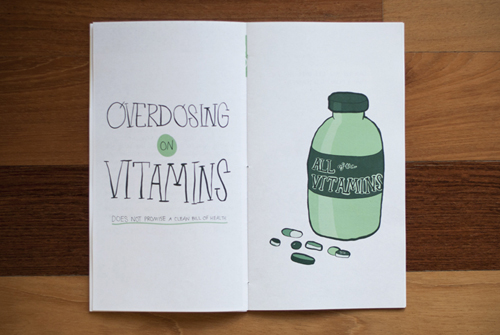 OVERDOSING
ON
VITAMINS
DOES NOT PROMISE A CLEAN BILL OF HEALTH
ALL
VITAMINS